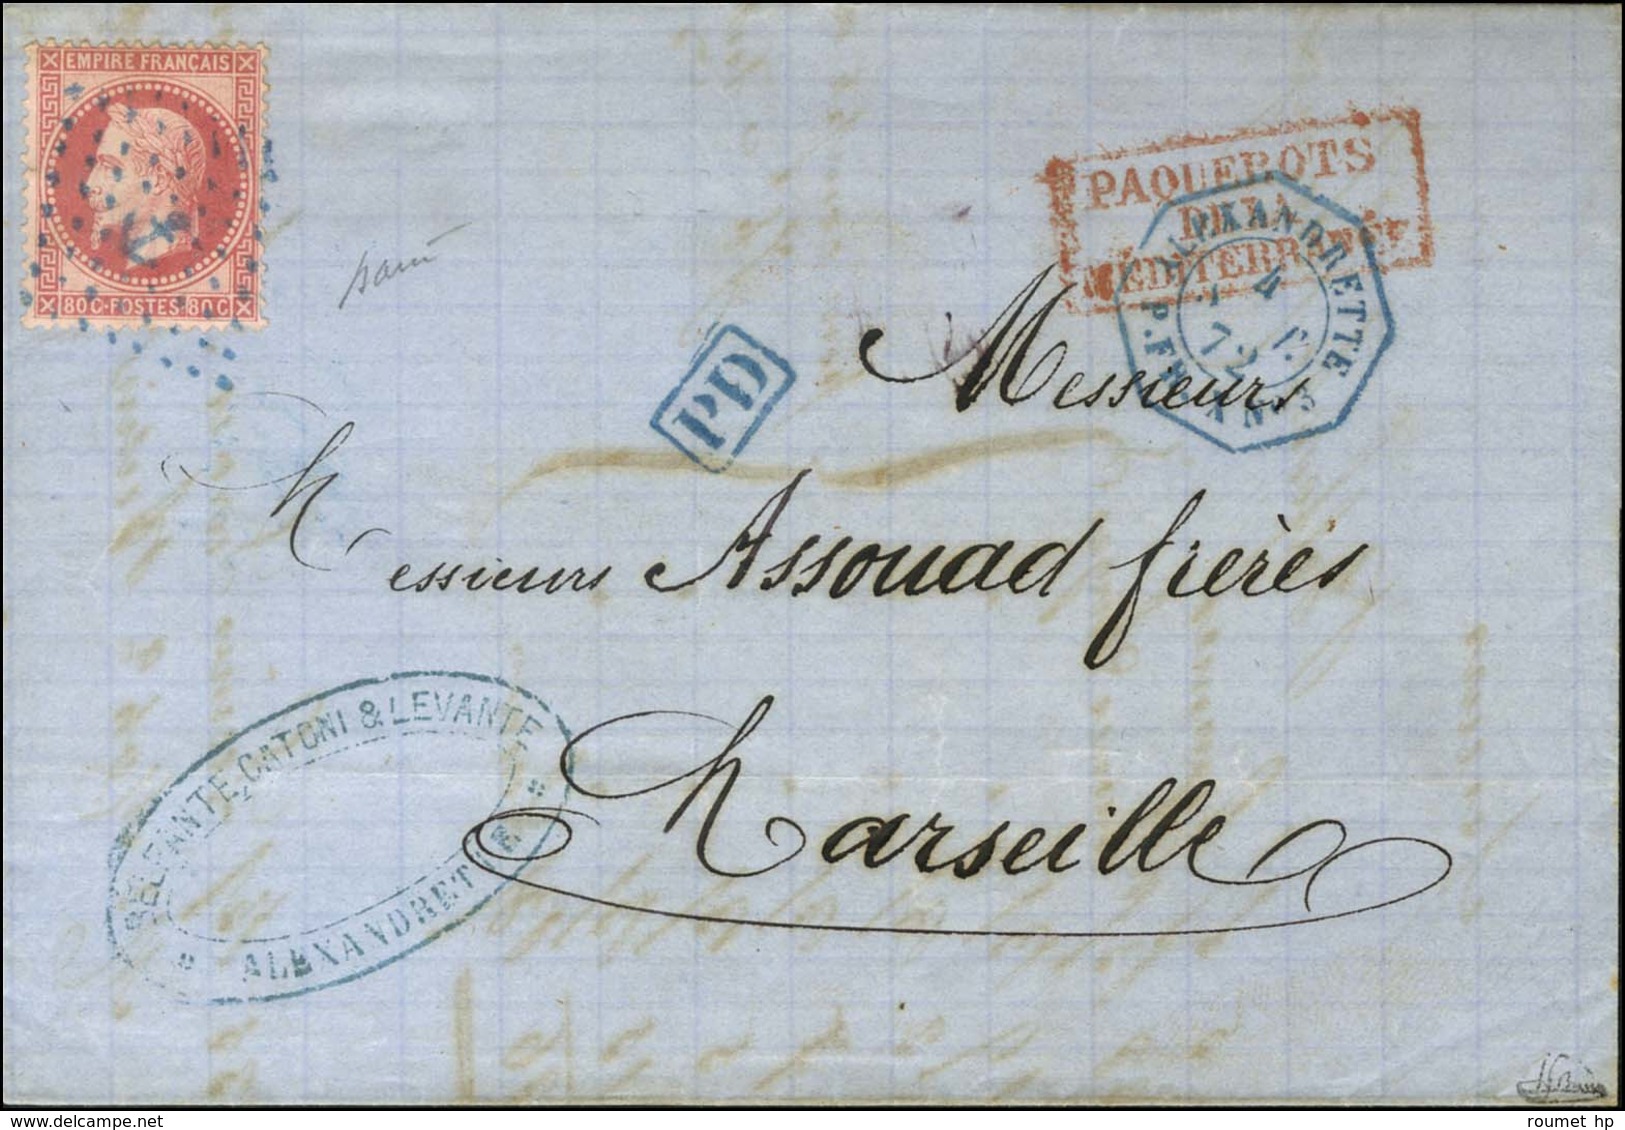 EMPIRE FRANÇAIS
80C·POSTES·80C
PAQUEBOTS
DE LA
MÉDITERRANÉE
ALEXANDRETTE
4
72
PD
Messieurs
Messieurs Assouad frères
Marseille
BELFANTE, CATONI & LEVANTE
ALEXANDRETTE
roumet hp
www.delcampe.net